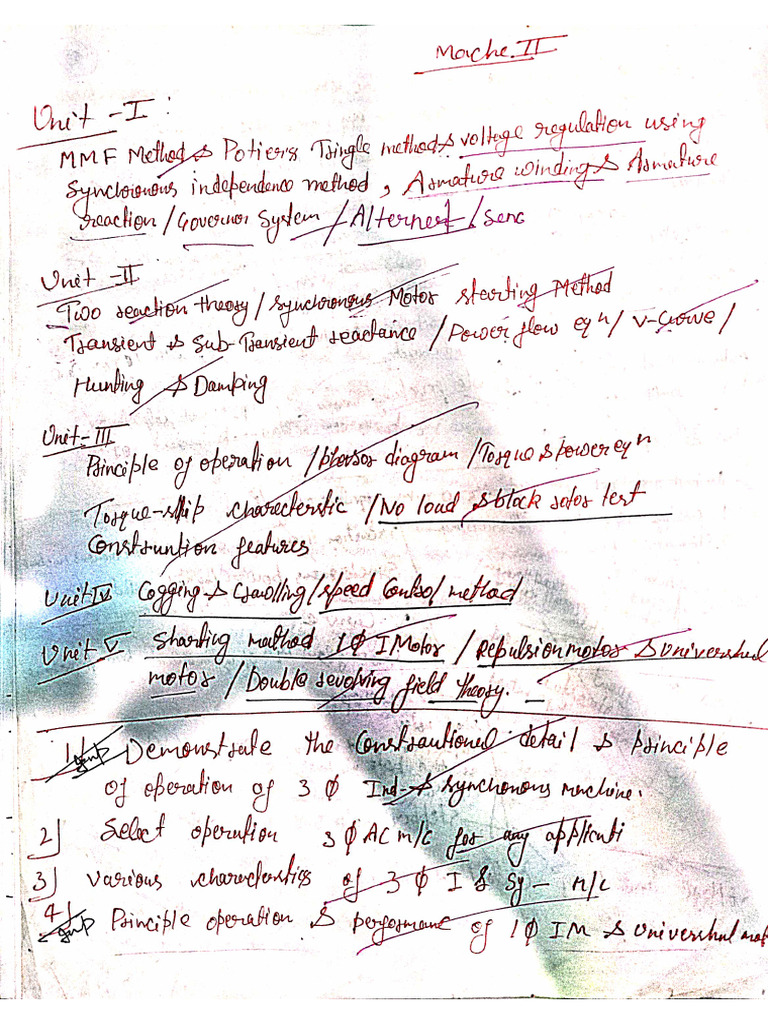 Mache. II
Unit - I :
MMF Method & Potier's Tringle method & voltage regulation using
Synchronous independence method, Armature winding & Armature
reaction / Governor System / Alternest / Senc
Unit - II
Two reaction theory / Synchronous Motor starting Method
Transient & Sub-Transient reactance / Power flow eqn / V-Curve /
Hunting & Damping
Unit - III
Principle of operation / phasor diagram / Torque & power eqn
Torque-slip charecterstic / No load & block rotor test
Construntion features
Unit IV Cogging & Crawlling / speed Control method
Unit V Sharting mathod 1Φ I Motor / Repulsion motor & Univershul
motor / Double revolving field theory. -
1) Imp Demonstrate the Constrautioned detail & principle
of operation of 3 Φ Ind- & Synchonous machine.
2) Select operation 3 Φ AC m/c for any applicati
3) Various charecterstics of 3 Φ I & Sy - m/c
4) Imp Principle operation & performanc of 1 Φ IM & Univershul mot